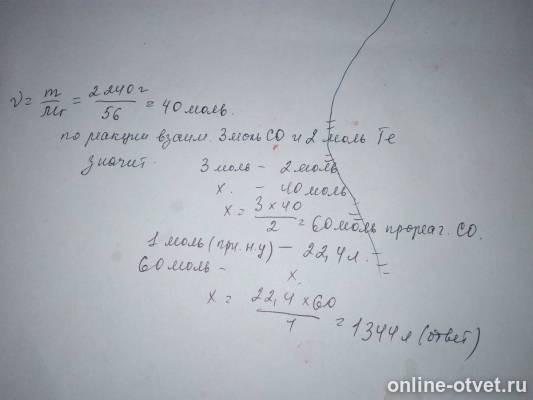 ν = m/Mr = 2240г/56 = 40 моль.
по реакции взаим. 3 моль CO и 2 моль Fe
значит.
3 моль - 2 моль
x. - 40 моль
x = 3 x 40/2 = 60 моль прореаг. CO.
1 моль (при. н.у) — 22,4 л.
60 моль - x
x = 22,4 x 60/1 = 1344 л (ответ)
online-otvet.ru